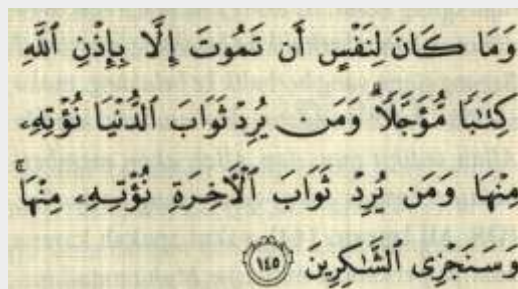 وَمَا كَانَ لِنَفْسٍ أَن تَمُوتَ إِلَّا بِإِذْنِ ٱللَّهِ
كِتَٰبًا مُّؤَجَّلًا ۗ وَمَن يُرِدْ ثَوَابَ ٱلدُّنْيَا نُؤْتِهِۦ
مِنْهَا وَمَن يُرِدْ ثَوَابَ ٱلْءَاخِرَةِ نُؤْتِهِۦ مِنْهَا ۚ
وَسَنَجْزِى ٱلشَّٰكِرِينَ ١٤٥